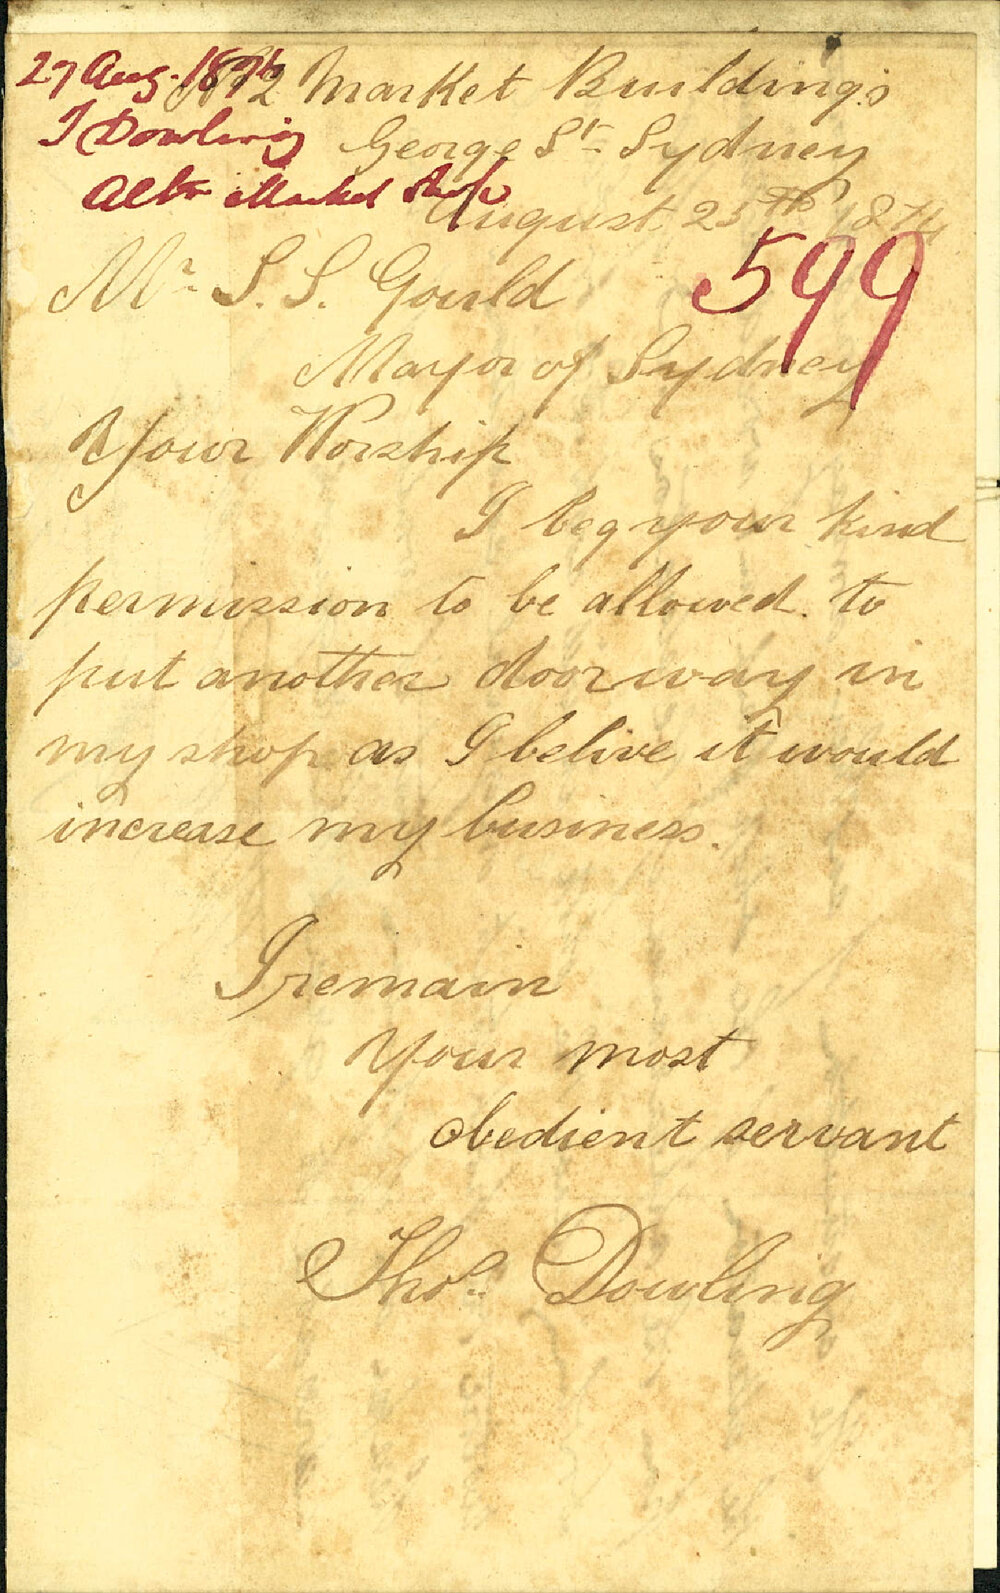 27 Aug. 1874
T Dowling
Altn Market Shop
No 2 Market Buildings
George St Sydney
August 25th 1874
599
Mr. S. S. Gould
Mayor of Sydney
Your Worship
I beg your kind
permission to be allowed. to
put another doorway in
my shop as I belive it would
increase my business.
I remain
Your most
obedient servant
Thos. Dowling